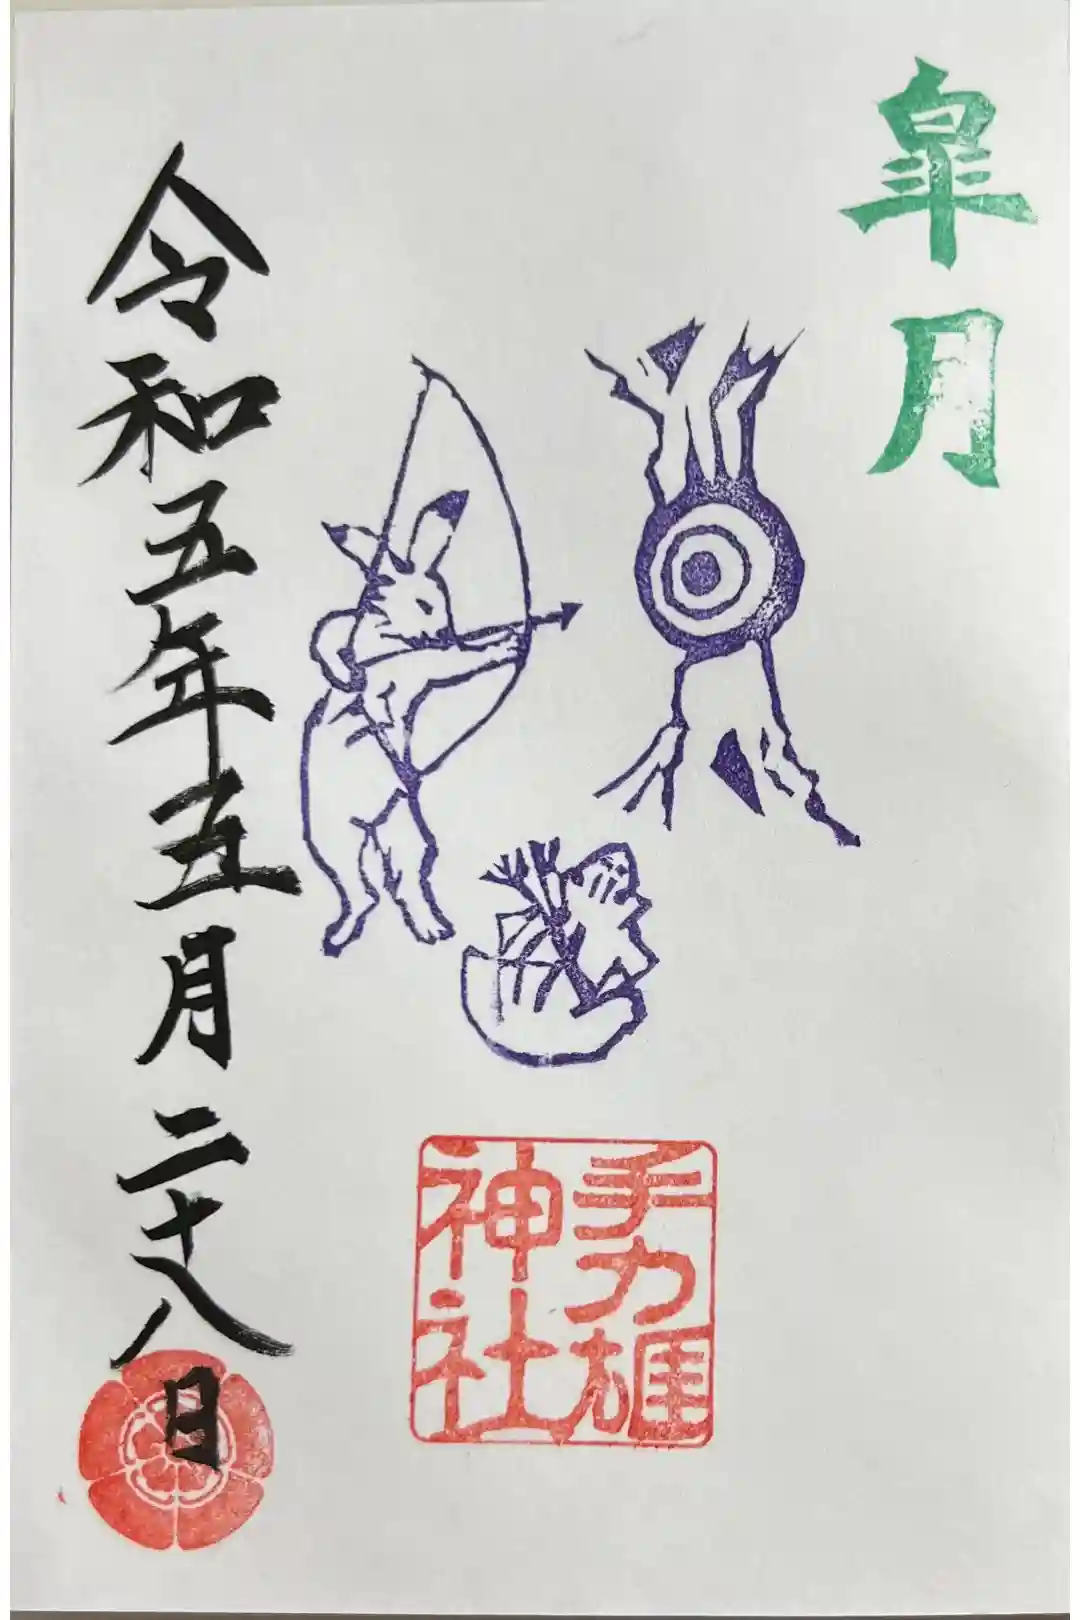 皐月
手力雄
神社
令和五年五月二十八日